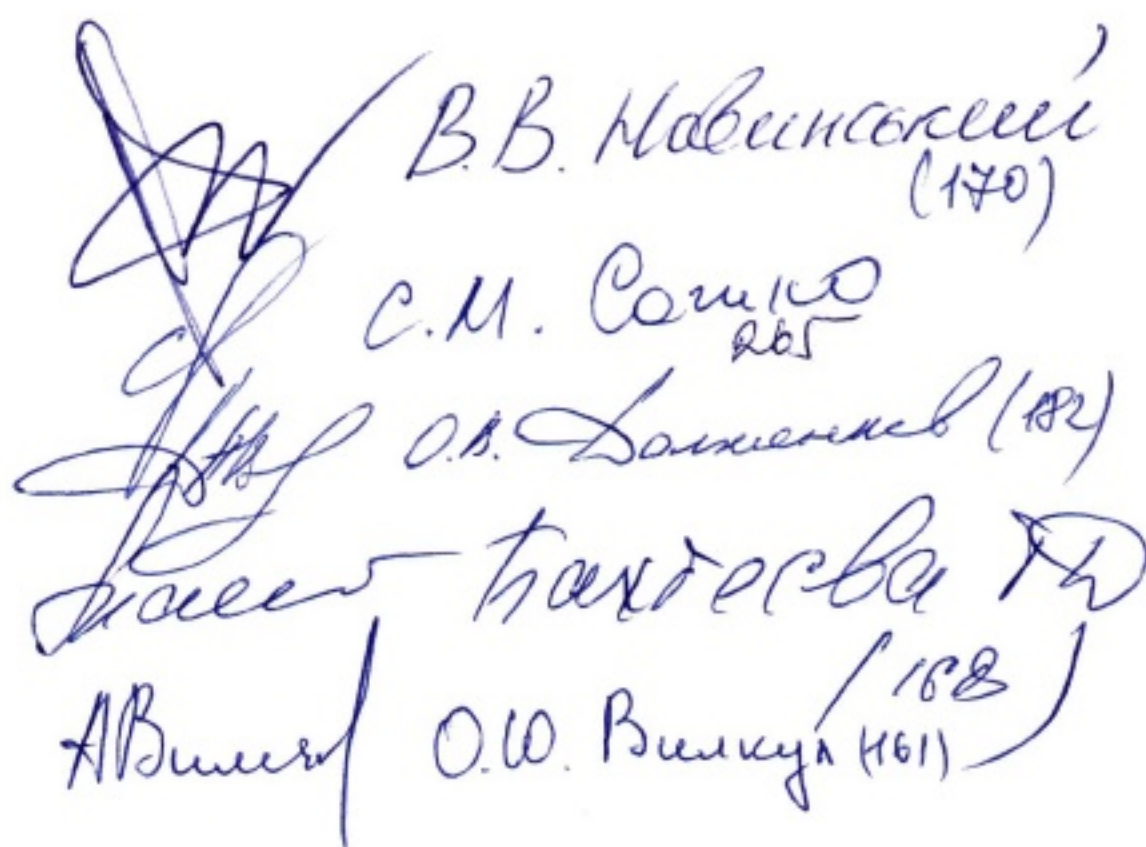 В.В. Новинський
(170)
С.М. Сочико
265
О.В. Долженков (182)
Бахтеєва ТД
(168)
О.Ю. Вилкул (161)